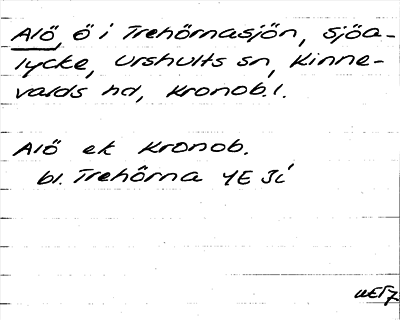 Alö, ö i Trehörnasjön, Sjöa-
lycke, Urshults sn, Kinne-
valds hd, Kronob.l.
Alö ek Kronob.
bl. Trehörna 4E 3i